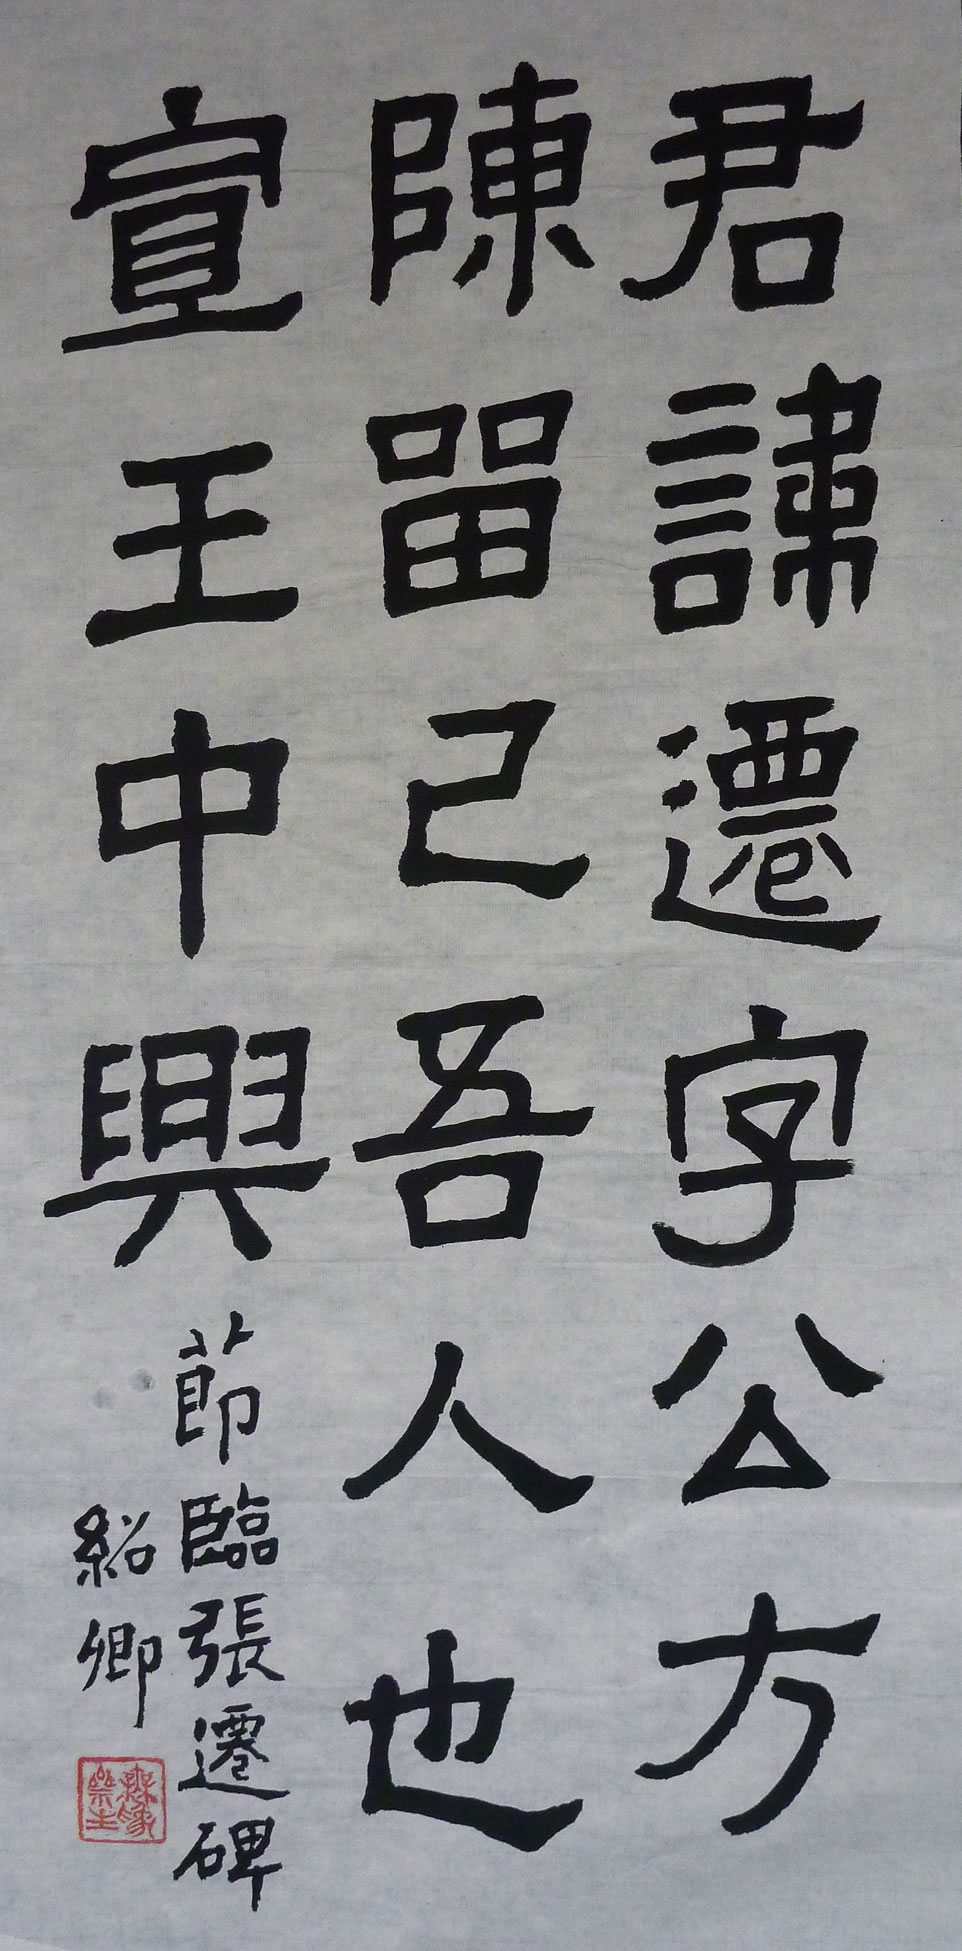 君諱遷字公方
陳留己吾人也
宣王中興
節臨張遷碑
紹卿